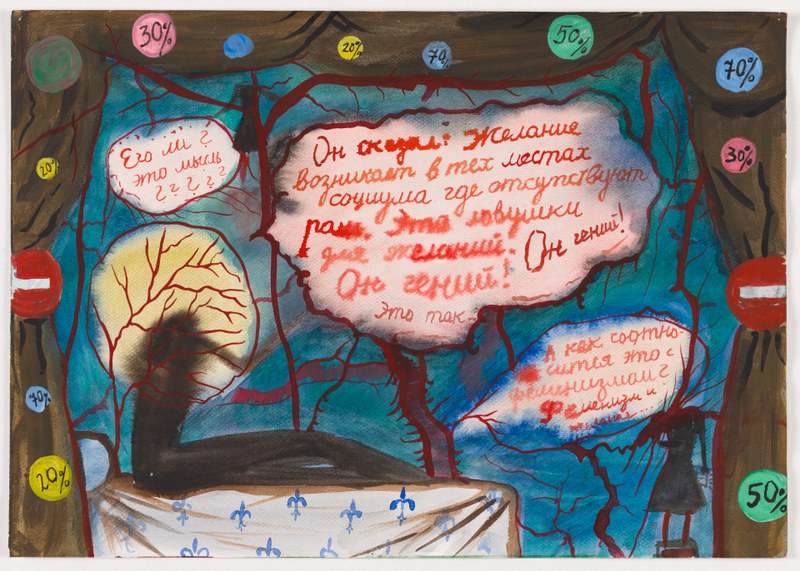 30%
20%
70%
50%
70%
20%
30%
Его ли?
это мысль
? ? ? ? ?
Он сказал: Желание
возникает в тех местах
социума где отсутствуют
Это ловушки
для желаний. Он гений!
Он гений!
Это так...
А как соотно-
сится это с
феминизмом?
Феминизм и
70%
20%
50%